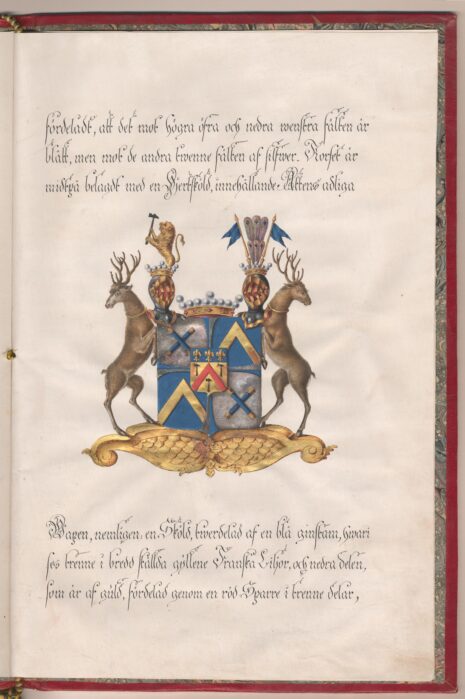 fördeladt, att det mot högra öfra och nedra wenstra fälten är
blått, men mot de andra twenne fälten af silfwer. Korset är
midtpå belagdt med en Hjertsköld, innehållande Ättens adliga
Wapen, nemligen: en Sköld, twerdelad af en blå ginstam, hwari
ses trenne i bredd ställda gyllene Franska Liljor, och nedra delen,
som är af guld, fördelad genom en röd Sparre i trenne delar,